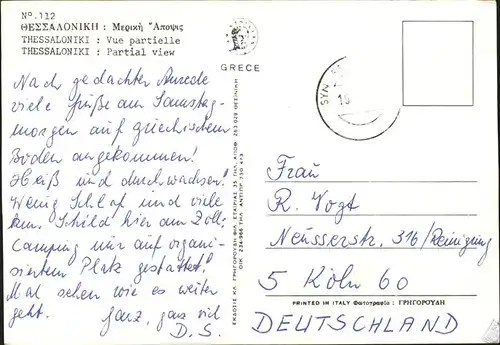 Nº.112
ΘΕΣΣΑΛΟΝΙΚΗ : Μερική Ἄποψις
THESSALONIKI : Vue partielle
THESSALONIKI : Partial view
GRECE
Nach gedachter Anrede
viele Grüße am Samstag-
morgen auf griechischem
Boden angekommen!
Heiß und durchwachsen!
Wenig Schlaf und viele
km. Schild hier am Zoll:
Camping nur auf organi-
siertem Platz gestattet!
Mal sehen wie es weiter
geht. Ganz, ganz viel
D.S.
ΕΚΔΟΣΙΣ ΚΑ ΓΡΗΓΟΡΟΥΔΗ ΒΙΑ. ΕΤΑΙΡΙΑΣ 35 ΤΗΛ. ΑΠΟΘ 263.029 ΘΕΣ/ΝΙΚΗ
ΟΙΚ 234/966 ΤΗΛ. ΑΝΤΙΠΡ 730 413
SYN
Frau
R. Vogt
Neusserstr. 316/Reinigung
5 Köln 60
PRINTED IN ITALY Φωτογραφία: ΓΡΗΓΟΡΟΥΔΗ
DEUTSCHLAND